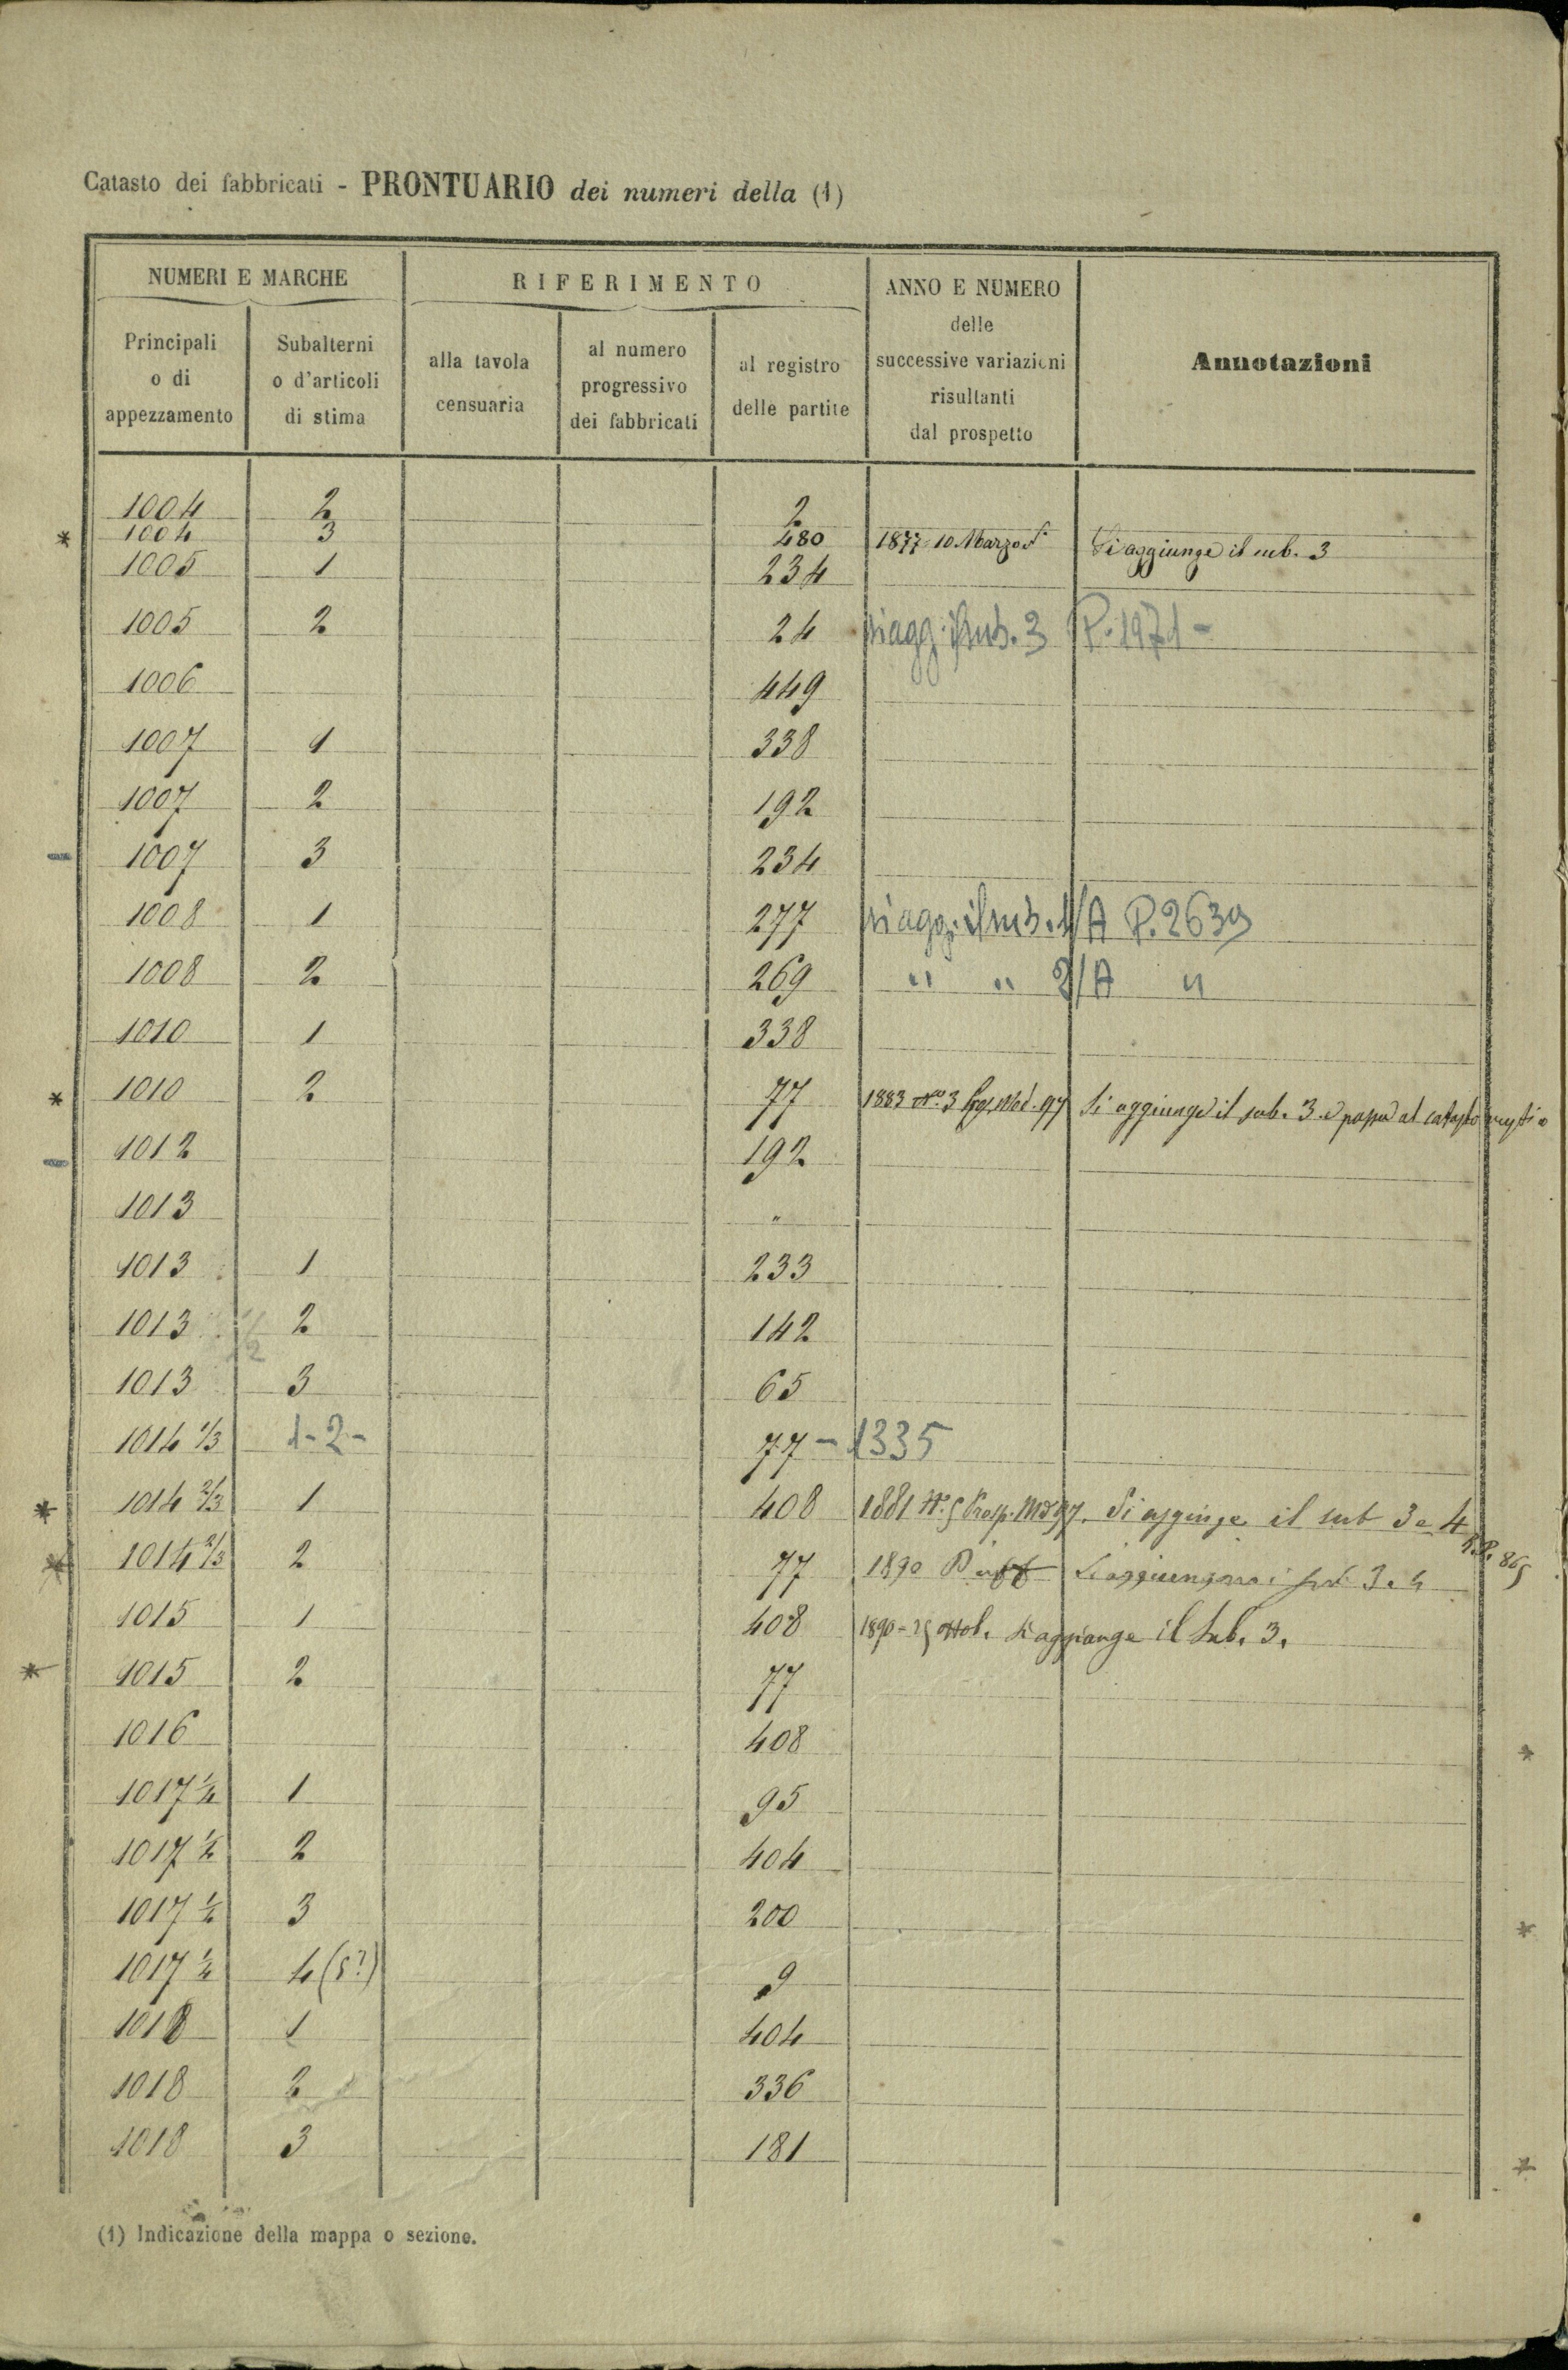 Catasto dei fabbricati - PRONTUARIO dei numeri della (1)
NUMERI E MARCHE
RIFERIMENTO
ANNO E NUMERO
delle
successive variazioni
risultanti
dal prospetto
Annotazioni
Principali
o di
appezzamento
Subalterni
o d'articoli
di stima
alla tavola
censuaria
al numero
progressivo
dei fabbricati
al registro
delle partite
1004 2 2
* 1004 3 480 1877-10 Marzo Si aggiunge il sub. 3
1005 1 234
1005 2 24 si agg. il sub. 3 P. 1971 -
1006 449
1007 1 338
1007 2 192
- 1007 3 234
1008 1 277 si agg. il sub. 1/A P. 2639
1008 2 269 " " 2/A "
1010 1 338
* 1010 2 77 1883 No. 3 Mod. 97 Si aggiunge il sub. 3 e passa al catasto
- 1012 192
1013 "
1013 1 233
1013 2 142
1013 3 65
1014 1/3 1-2- 77 - 1335
* 1014 2/3 1 408 1881 N. 5 Prosp. Mod 97. Si aggiunge il sub 3 e 4
* 1014 2/3 2 77 1890 Si aggiungono i sub 3.4
1015 1 408 1890-25 ottob. Si aggiunge il Sub. 3.
* 1015 2 77
1016 408
1017 1/2 1 95
1017 1/2 2 404
1017 1/2 3 200
1017 1/2 4 (5?) 9
1018 1 404
1018 2 336
1018 3 181
(1) Indicazione della mappa o sezione.